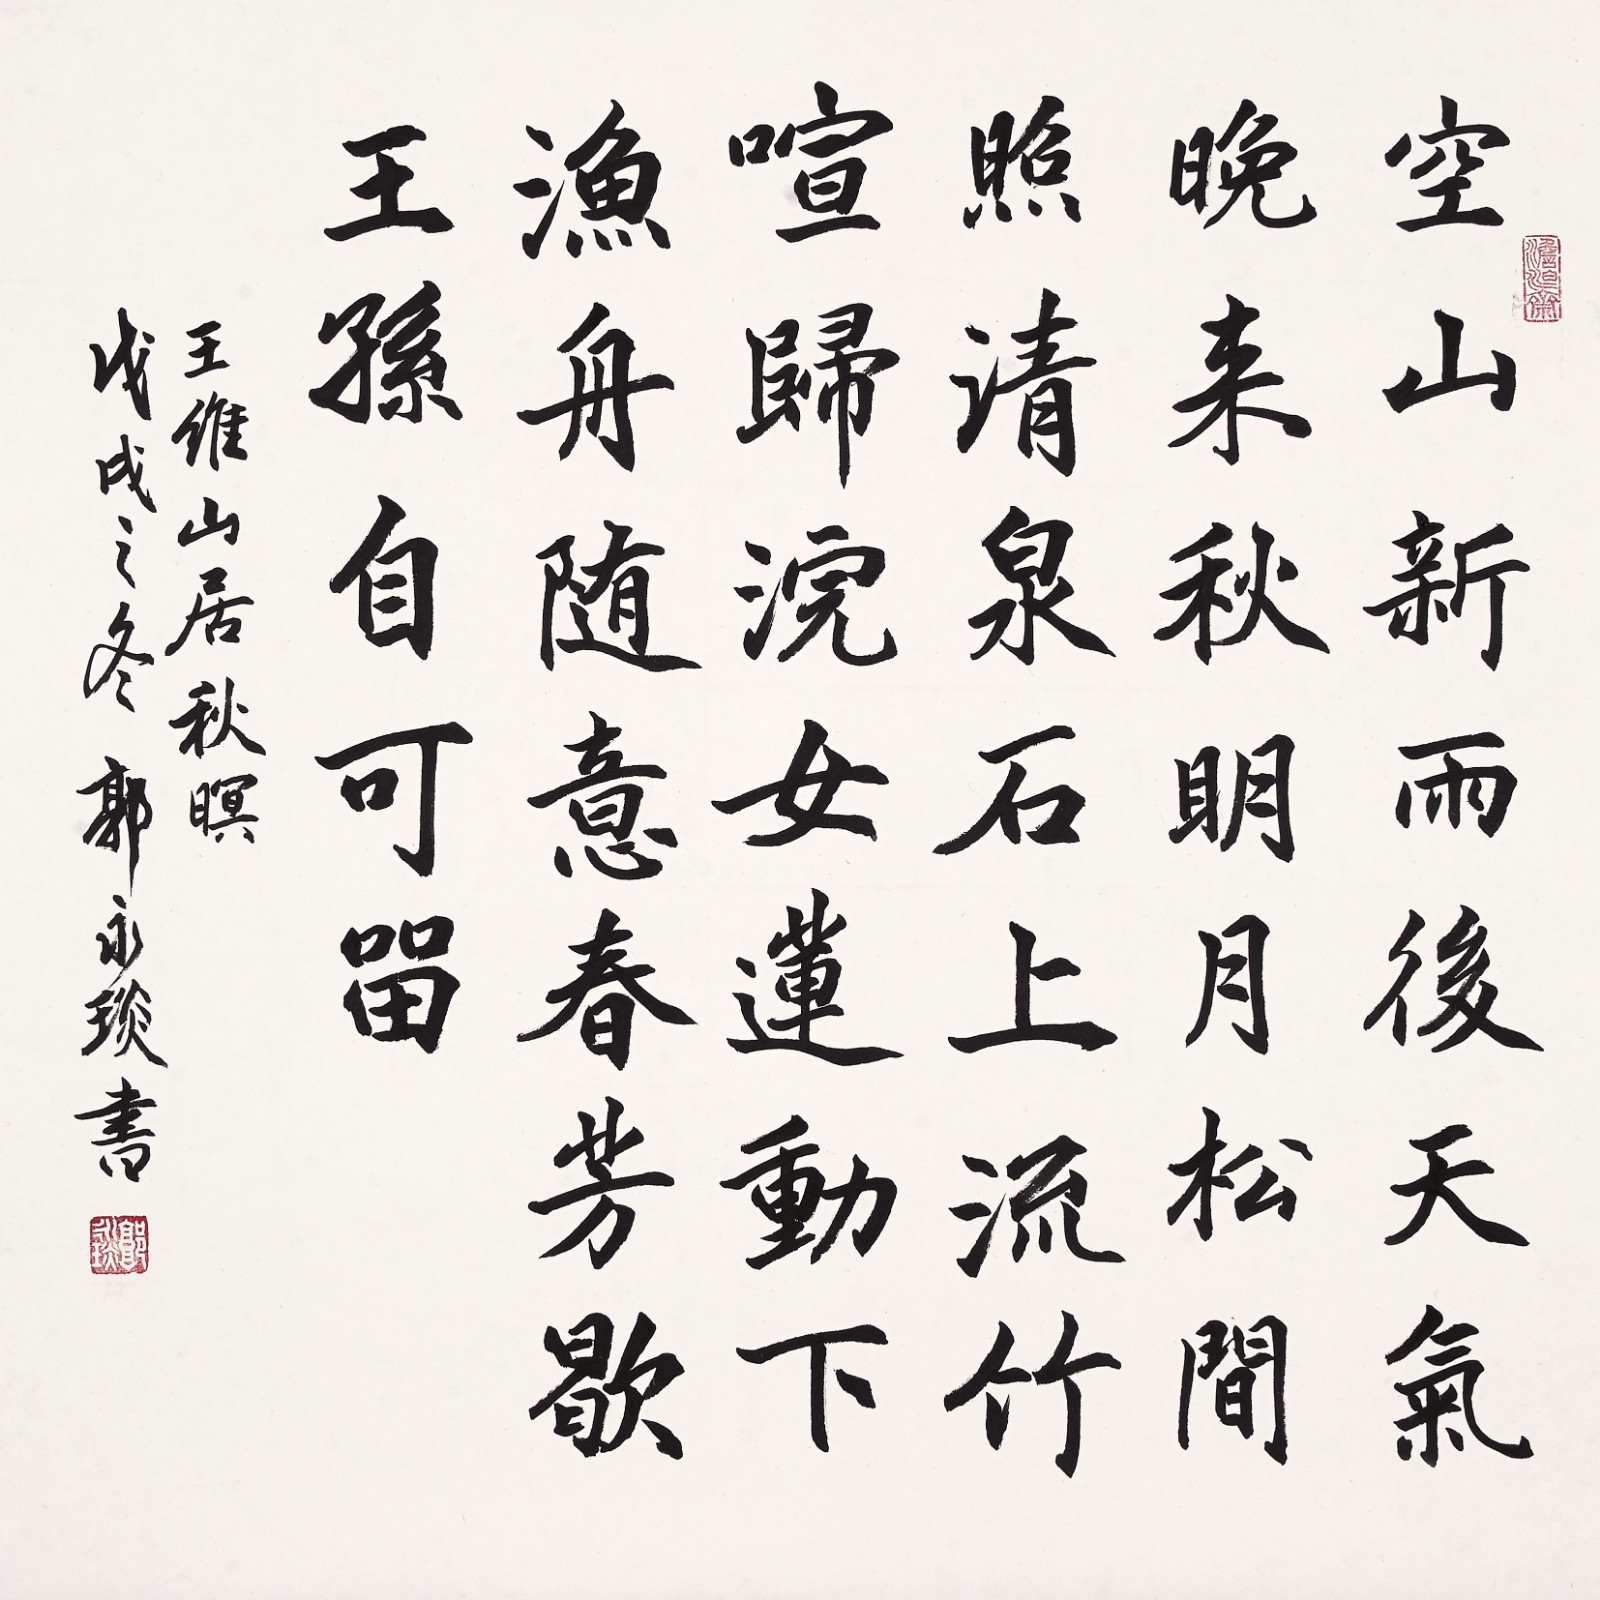 空山新雨後天氣
晚来秋明月松間
照请泉石上流竹
喧歸浣女蓮動下
漁舟随意春芳歇
王孫自可留
王維山居秋暝
戊戌之冬郭永琰書
郭永琰